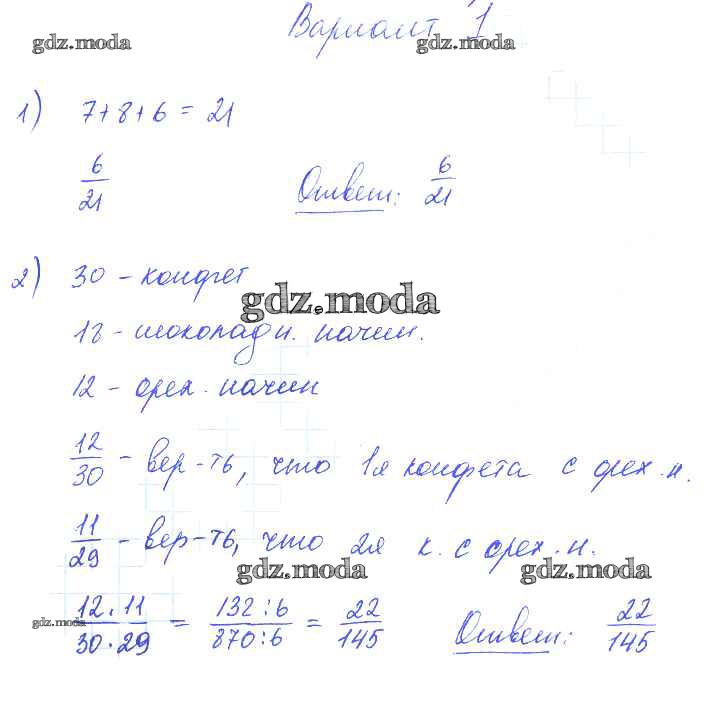 Вариант 1
gdz.moda gdz.moda
1) 7+8+6 = 21
6/21 Ответ: 6/21
2) 30 - конфет
gdz.moda
18 - шоколадн. начин.
12 - орех. начин
12/30 - вер-ть, что 1я конфета с орех.н.
11/29 - вер-ть, что 2я к. с орех.н.
gdz.moda gdz.moda
gdz.moda
12·11/30·29 = 132:6/870:6 = 22/145 Ответ: 22/145